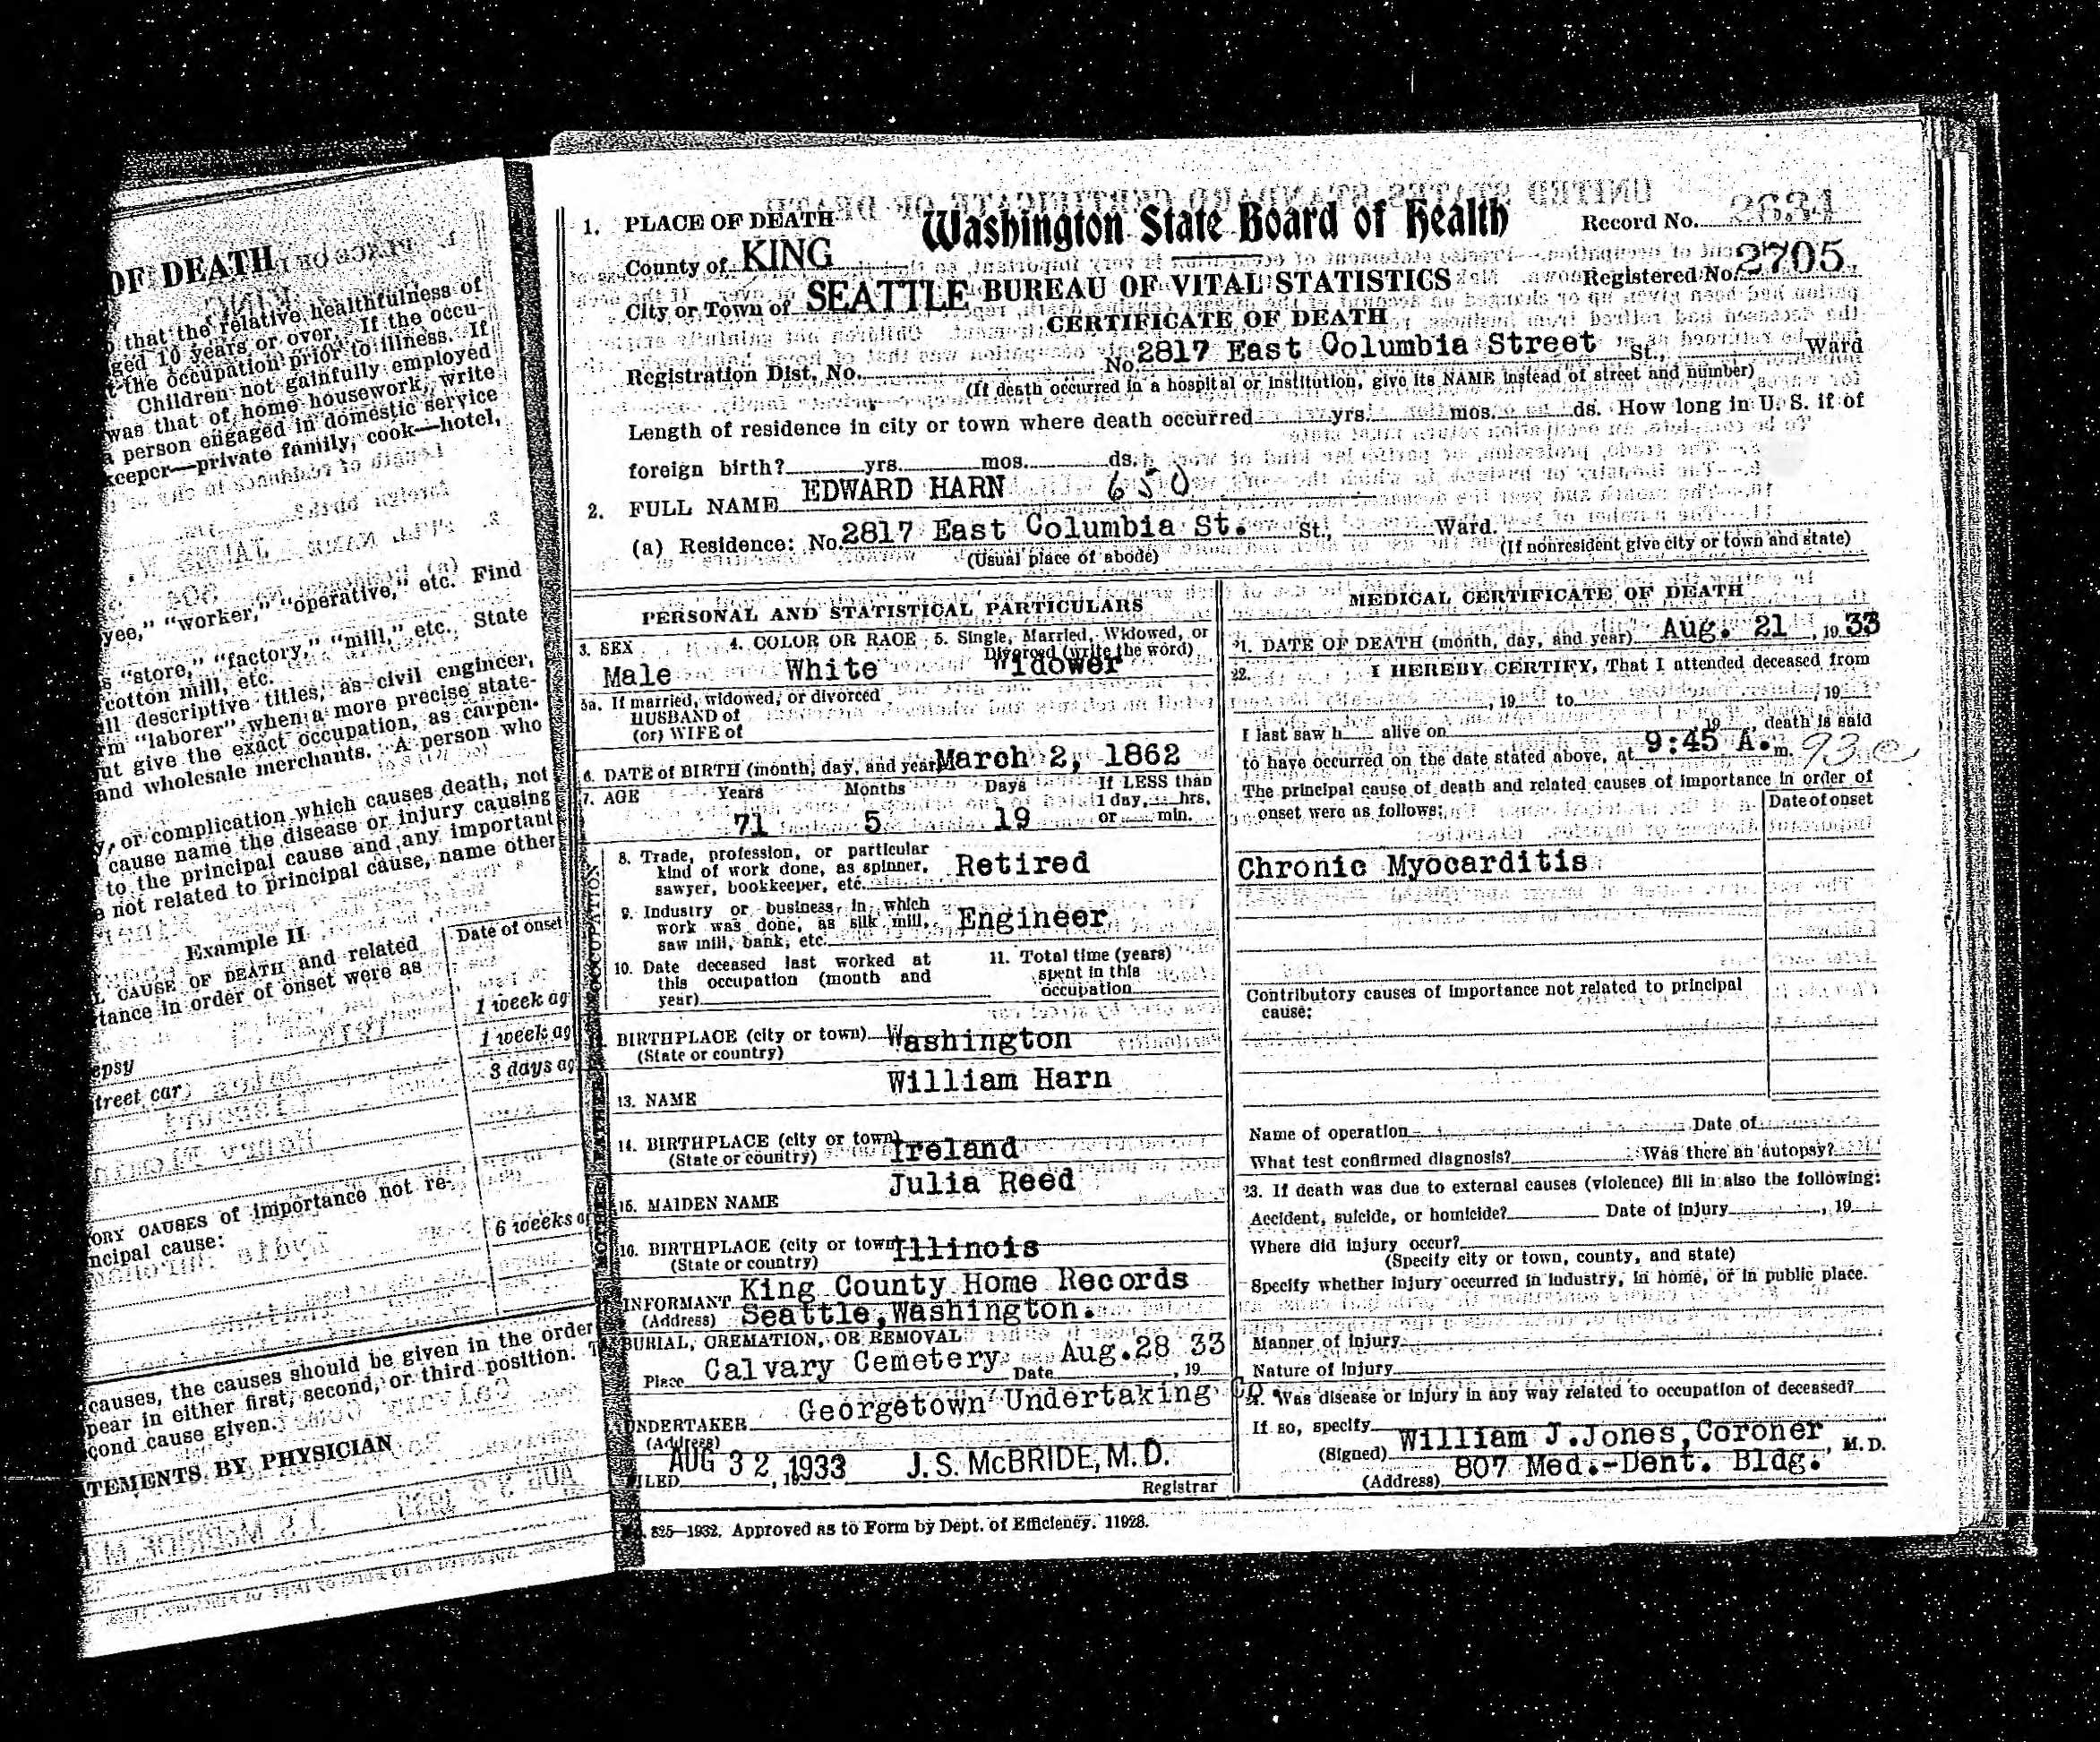 OF DEATH
that the relative healthfulness of
ged 10 years or over. If the occu-
t the occupation prior to illness. If
Children not gainfully employed
was that of home housework, write
a person engaged in domestic service
keeper—private family, cook—hotel,
yee," "worker," "operative," etc. Find
s "store," "factory," "mill," etc. State
cotton mill, etc.
all descriptive titles, as civil engineer,
rm "laborer" when a more precise state-
ut give the exact occupation, as carpen-
and wholesale merchants. A person who
y, or complication which causes death, not
cause name the disease or injury causing
to the principal cause and any important
e not related to principal cause, name other
Example II
L CAUSE OF DEATH and related
tance in order of onset were as
Date of onset
1 week ag
1 week ag
epsy
3 days ag
treet car
ORY CAUSES of importance not re-
ncipal cause:
6 weeks a
causes, the causes should be given in the order
pear in either first, second, or third position. T
cond cause given.
TEMENTS BY PHYSICIAN
1. PLACE OF DEATH
Washington State Board of Health
Record No. 2634
County of KING
BUREAU OF VITAL STATISTICS
Registered No. 2705
City or Town of SEATTLE
CERTIFICATE OF DEATH
Registration Dist. No. No. 2817 East Columbia Street St., Ward
(If death occurred in a hospital or institution, give its NAME instead of street and number)
Length of residence in city or town where death occurred yrs. mos. ds. How long in U. S. if of
foreign birth? yrs. mos. ds.
2. FULL NAME EDWARD HARN 650
(a) Residence: No. 2817 East Columbia St. St., Ward.
(Usual place of abode) (If nonresident give city or town and state)
PERSONAL AND STATISTICAL PARTICULARS
3. SEX 4. COLOR OR RACE 5. Single, Married, Widowed, or
Divorced (write the word)
Male White Widower
5a. If married, widowed, or divorced
HUSBAND of
(or) WIFE of
6. DATE of BIRTH (month, day, and year) March 2, 1862
7. AGE Years Months Days If LESS than
1 day, hrs.
71 5 19 or min.
OCCUPATION
8. Trade, profession, or particular
kind of work done, as spinner,
sawyer, bookkeeper, etc. Retired
9. Industry or business in which
work was done, as silk mill,
saw mill, bank, etc. Engineer
10. Date deceased last worked at
this occupation (month and
year)
11. Total time (years)
spent in this
occupation
BIRTHPLACE (city or town) Washington
(State or country)
13. NAME William Harn
14. BIRTHPLACE (city or town) Ireland
(State or country)
15. MAIDEN NAME Julia Reed
16. BIRTHPLACE (city or town) Illinois
(State or country)
INFORMANT King County Home Records
(Address) Seattle, Washington.
BURIAL, CREMATION, OR REMOVAL
Place Calvary Cemetery Date Aug. 28, 19 33
UNDERTAKER Georgetown Undertaking Co
(Address)
FILED AUG 3 2 1933, 19 J. S. McBRIDE, M. D.
Registrar
825—1932. Approved as to Form by Dept. of Efficiency. 11928.
MEDICAL CERTIFICATE OF DEATH
21. DATE OF DEATH (month, day, and year) Aug. 21, 19 33
22. I HEREBY CERTIFY, That I attended deceased from
, 19 to , 19
I last saw h alive on 19 , death is said
to have occurred on the date stated above, at 9:45 A. m. 93c
The principal cause of death and related causes of importance in order of
onset were as follows:
Date of onset
Chronic Myocarditis
Contributory causes of importance not related to principal
cause:
Name of operation Date of
What test confirmed diagnosis? Was there an autopsy?
23. If death was due to external causes (violence) fill in also the following:
Accident, suicide, or homicide? Date of injury , 19
Where did injury occur?
(Specify city or town, county, and state)
Specify whether injury occurred in industry, in home, or in public place.
Manner of injury
Nature of injury
24. Was disease or injury in any way related to occupation of deceased?
If so, specify
(Signed) William J. Jones, Coroner, M. D.
(Address) 807 Med.-Dent. Bldg.